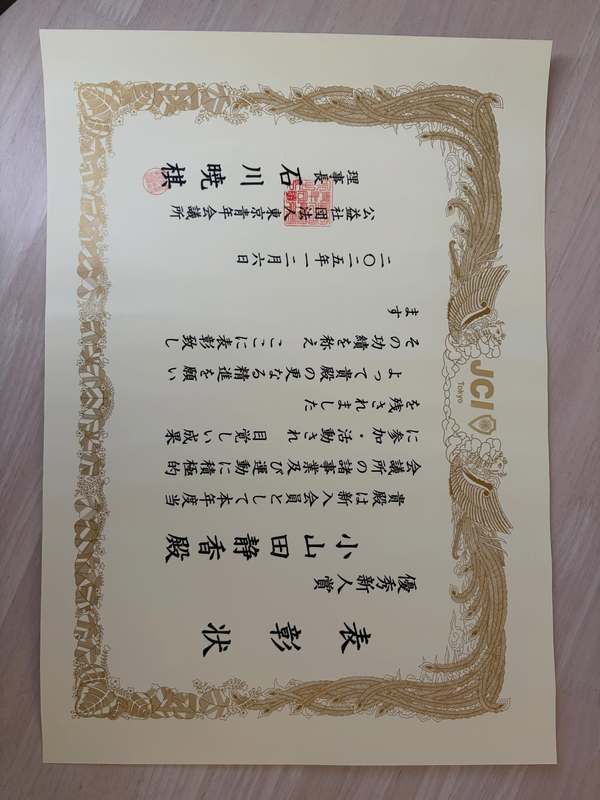 JCI
Tokyo
表彰状
優秀新人賞
小山田静香殿
貴殿は新入会員として本年度当
会議所の諸事業及び運動に積極的
に参加・活動され 目覚しい成果
を残されました
よって貴殿の更なる精進を願い
その功績を称え ここに表彰致し
ます
二〇二五年一二月六日
公益社団法人東京青年会議所
理事長 石川暁棋